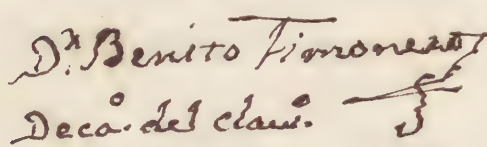 Dn. Benito Timoneda
Deca.o del clau.o